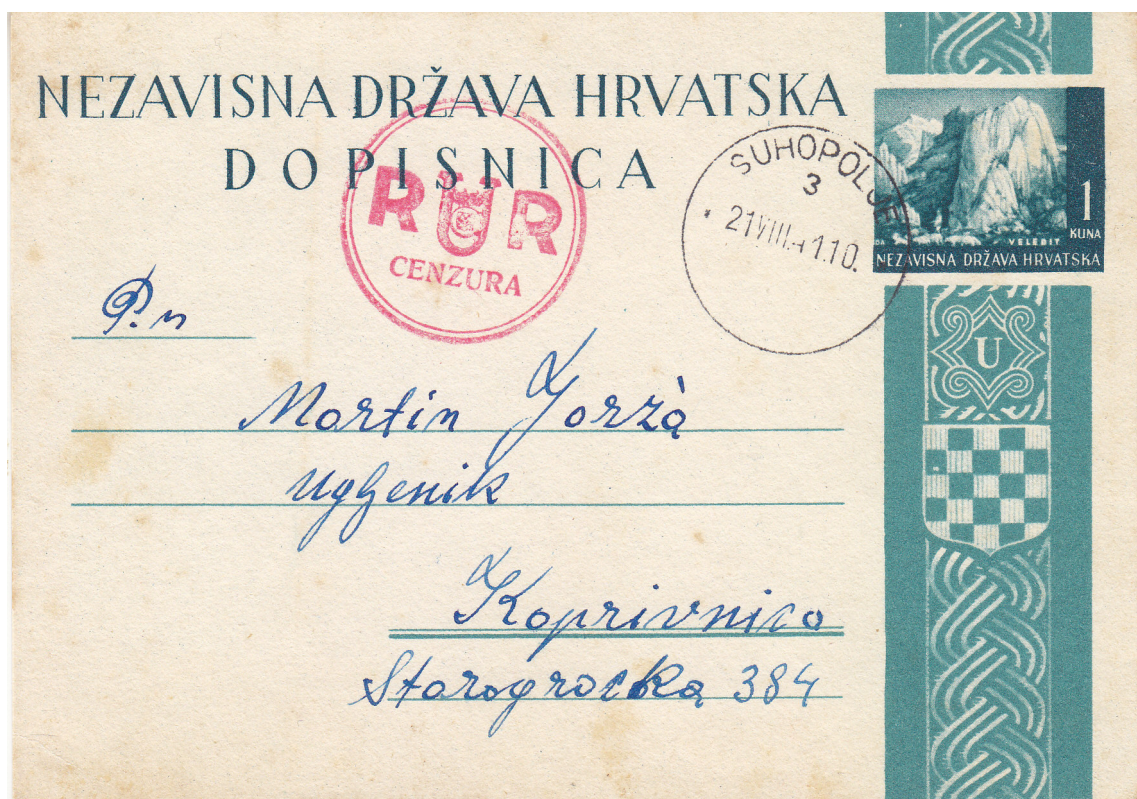 NEZAVISNA DRŽAVA HRVATSKA
DOPISNICA
R U R
CENZURA
SUHOPOLJE
3
21 VIII
110.
VELEBIT
1
KUNA
NEZAVISNA DRŽAVA HRVATSKA
U
P.n
Martin
Ugljenik
Koprivnica
Starogradska 384